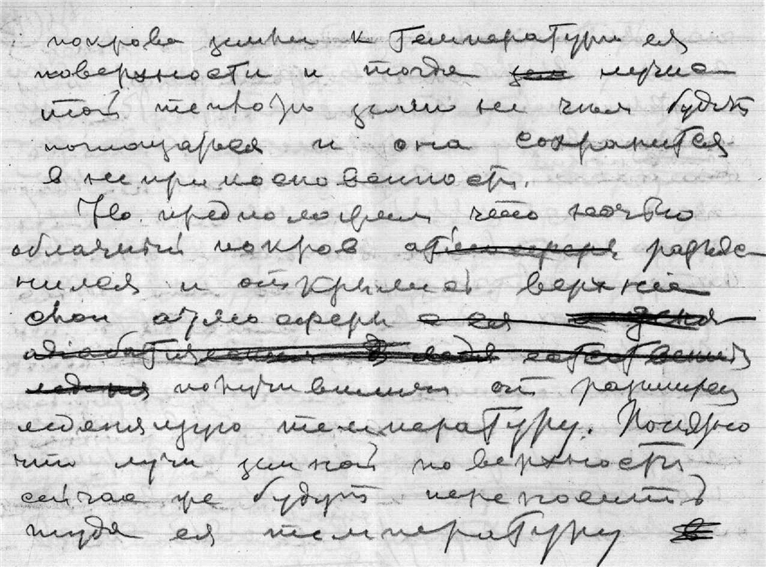 покрова земли к температуре ея
поверхности и тогда лучис
той теплоты земли не чем будет
поглощаться и она сохранится
в неприкосновенности.
Но предположим что ночью
облачный покров атмосферы разъяс
нился и открылись верхние
слои атмосферы
получившими от расширен
леденящую температуру. Понятно
что лучи земной поверхности
сейчас же будут переносить
туда ея температуру